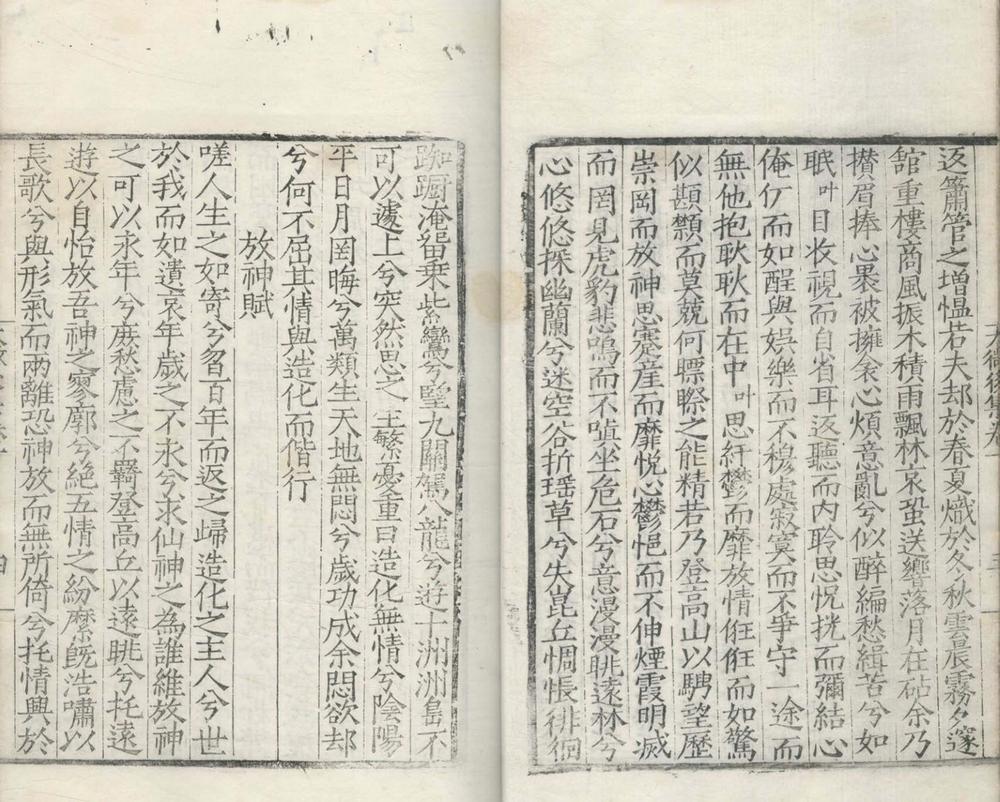 返簫管之增愠若夫却於春夏熾於冬秋雲晨霧夕邃
舘重樓商風振木積雨飄林哀蛩送響落月在砧余乃
攅眉捧心裹被擁衾心煩意亂兮似醉編愁緝苦兮如
眠叶目收視而自省耳返聽而内聆思怳挩而彌結心
俺仄而如酲與娯樂而不穆處寂寞而不爭守一途而
無他抱耿耿而在中叶思紆鬱而靡放情俇俇而如驚
似顜纇而莫兢何瞟瞭之能精若乃登高山以騁望歷
崇岡而放神思蹇産而靡悦心鬱悒而不伸煙霞明滅
而罔見虎豹悲鳴而不嗔坐危石兮意漫漫眺遠林兮
心悠悠探幽蘭兮迷空谷折瑶草兮失崑丘惆悵徘徊
踟蹰淹留乗紫鸞兮墜九關駕八龍兮遊十洲洲島不
可以遽上兮突然思之生繁憂重曰造化無情兮陰陽
平日月罔晦兮萬類生天地無悶兮歲功成余悶欲却
兮何不屈其情與造化而偕行
放神賦
嗟人生之如寄兮曶百年而返之歸造化之主人兮世
於我而如遺哀年歲之不永兮求仙神之為誰維放神
之可以永年兮庶愁慮之不羇登高丘以遠眺兮托遠
遊以自怡放吾神之寥廓兮絶五情之紛縻旣浩嘯以
長歌兮與形氣而兩離恐神放而無所倚兮托情興於